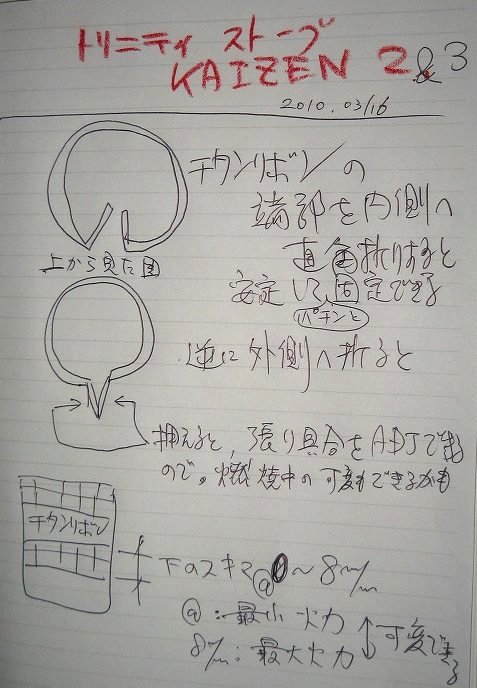 トリニティ ストーブ
KAIZEN 2 & 3
2010.03/16
チタンリボンの
端部を内側へ
直角折りすると
安定して固定できる
パチンと
上から見た図
逆に外側へ折ると
押えると、張り具合をADJできる
ので。燃焼中の可変もできるかも
チタンリボン
下のスキマ@0〜8m/m
@:最小火力
8m/m:最大火力
可変できる